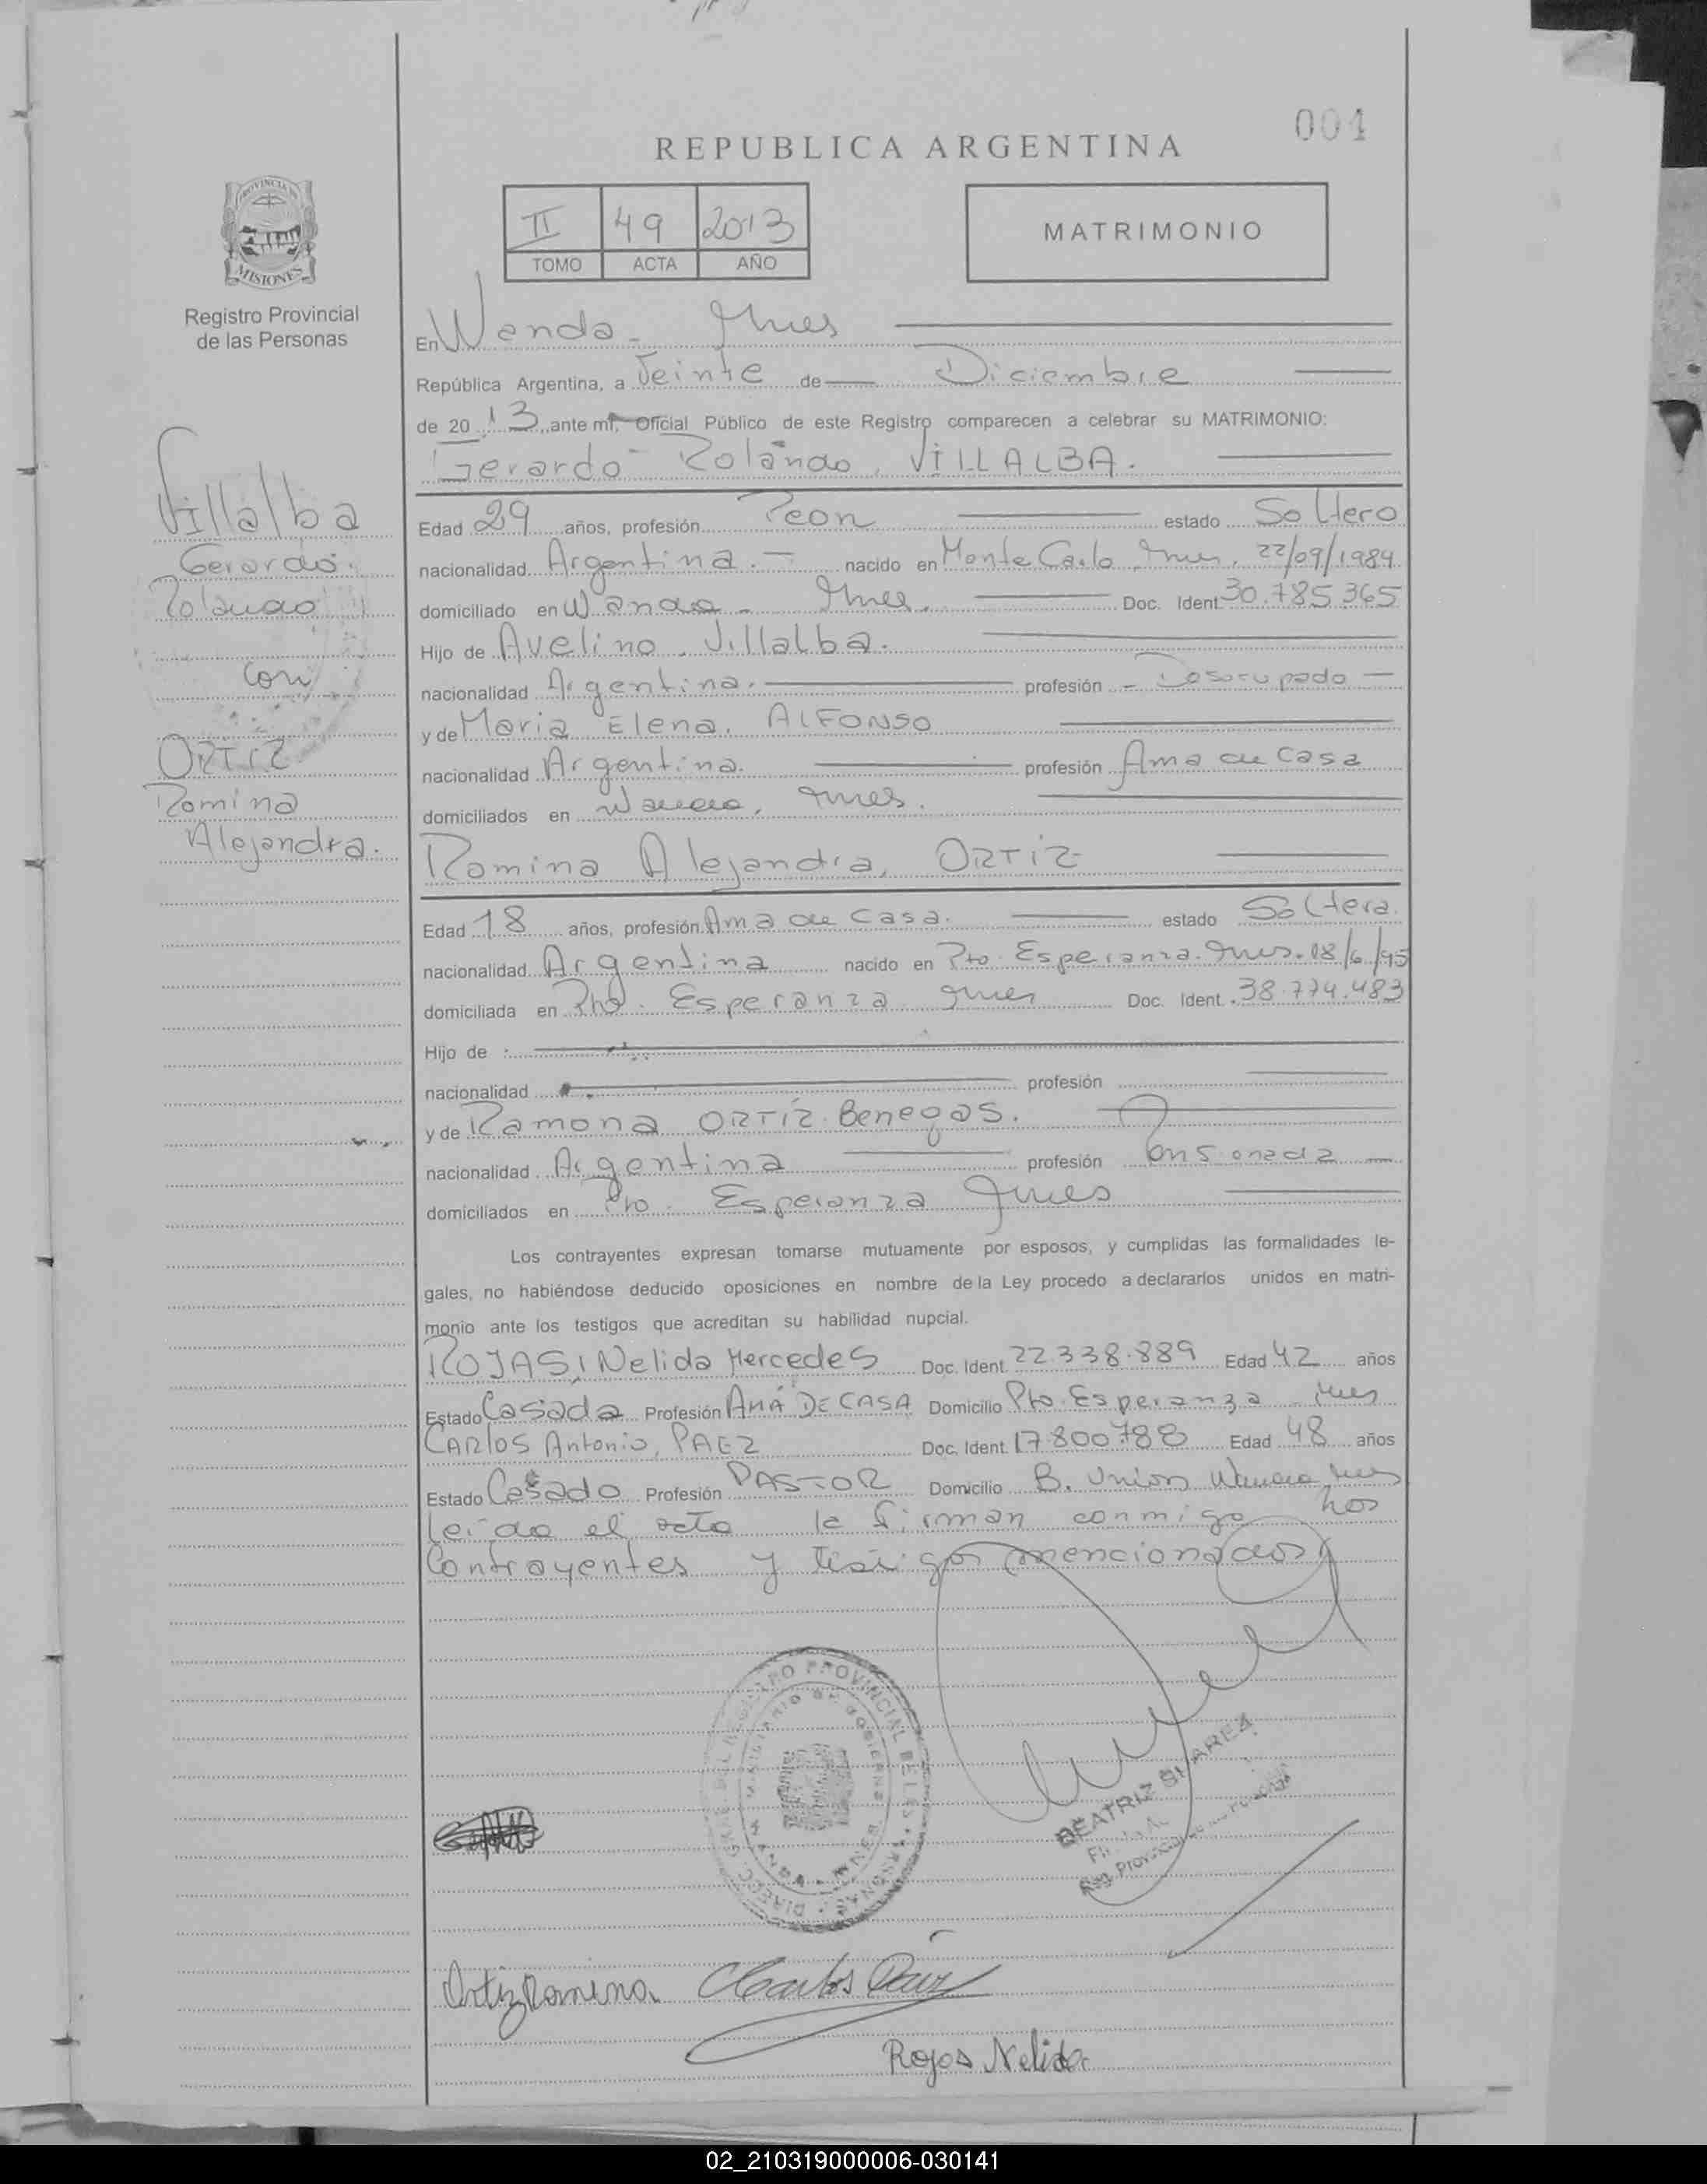 004
REPUBLICA ARGENTINA
II 49 2013
TOMO ACTA AÑO
MATRIMONIO
PROVINCIA
MISIONES
Registro Provincial
de las Personas
En Wanda - Mnes
República Argentina, a Veinte de Diciembre
de 2013 ante mí, Oficial Público de este Registro comparecen a celebrar su MATRIMONIO:
Gerardo Rolando, VILLALBA.
Villalba
Gerardo
Rolando
con
ORTIZ
Romina
Alejandra.
Edad 29 años, profesión Peon estado Soltero
nacionalidad Argentina.- nacido en Monte Carlo, Mnes, 22/09/1984
domiciliado en Wanda - Mnes. Doc. Ident. 30.785.365
Hijo de Avelino, Villalba.
nacionalidad Argentina. profesión - Desocupado -
y de Maria Elena, ALFONSO
nacionalidad Argentina. profesión Ama de Casa
domiciliados en Wanda, Mnes.
Romina Alejandra, ORTIZ
Edad 18 años, profesión Ama de Casa. estado Soltera.
nacionalidad Argentina nacido en Pto. Esperanza. Mnes. 18/6/95
domiciliada en Pto. Esperanza Mnes Doc. Ident. 38.774.483
Hijo de
nacionalidad profesión
y de Ramona ORTIZ Benegas.
nacionalidad Argentina profesión Pensionada
domiciliados en Pto. Esperanza Mnes
Los contrayentes expresan tomarse mutuamente por esposos, y cumplidas las formalidades le-
gales, no habiéndose deducido oposiciones en nombre de la Ley procedo a declararlos unidos en matri-
monio ante los testigos que acreditan su habilidad nupcial.
ROJAS, Nelida Mercedes Doc. Ident. 22.338.889 Edad 42 años
Estado Casada Profesión AMA DE CASA Domicilio Pto. Esperanza Mnes
CARlOS Antonio, PAEZ Doc. Ident. 17.800788 Edad 48 años
Estado Casado Profesión PASTOR Domicilio B. Union Wanda Mnes
Leida el acta la firman conmigo los
Contrayentes y testigos mencionados
BEATRIZ
Reg. Provincial
Ortiz Romina Carlos Paez
Rojas Nelida
02_210319000006-030141